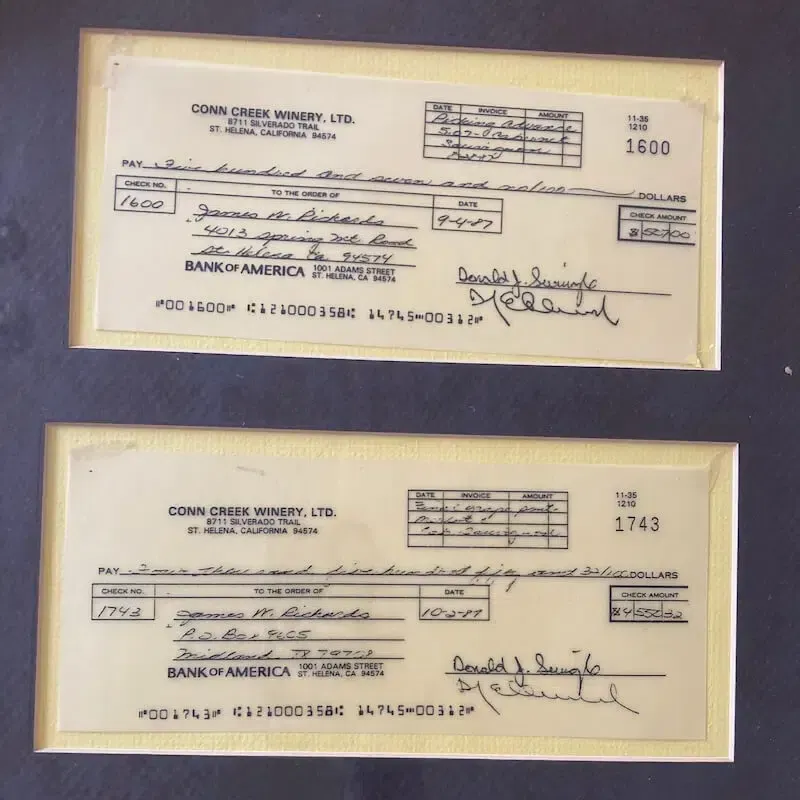 CONN CREEK WINERY, LTD.
8711 SILVERADO TRAIL
ST. HELENA, CALIFORNIA 94574
DATE INVOICE AMOUNT
Picking Advance
5.07 Cabernet
Sauvignon
11-35
1210
1600
PAY Five hundred and seven and no/100 DOLLARS
CHECK NO. TO THE ORDER OF DATE CHECK AMOUNT
1600 James W. Rickards 9-4-87 $507.00
4013 Spring Mt. Road
St. Helena Ca. 94574
BANK OF AMERICA 1001 ADAMS STREET
ST. HELENA, CA 94574
Donald J.
⑈001600⑈ ⑆121000358⑆ 14745⑉00312⑈
CONN CREEK WINERY, LTD.
8711 SILVERADO TRAIL
ST. HELENA, CALIFORNIA 94574
DATE INVOICE AMOUNT
grape
Merlot
Cab Sauvignon
11-35
1210
1743
PAY Four thousand five hundred fifty and 32/100 DOLLARS
CHECK NO. TO THE ORDER OF DATE CHECK AMOUNT
1743 James W. Rickards 10-2-87 $4550.32
P.O. Box
Midland TX
BANK OF AMERICA 1001 ADAMS STREET
ST. HELENA, CA 94574
Donald J.
⑈001743⑈ ⑆121000358⑆ 14745⑉00312⑈